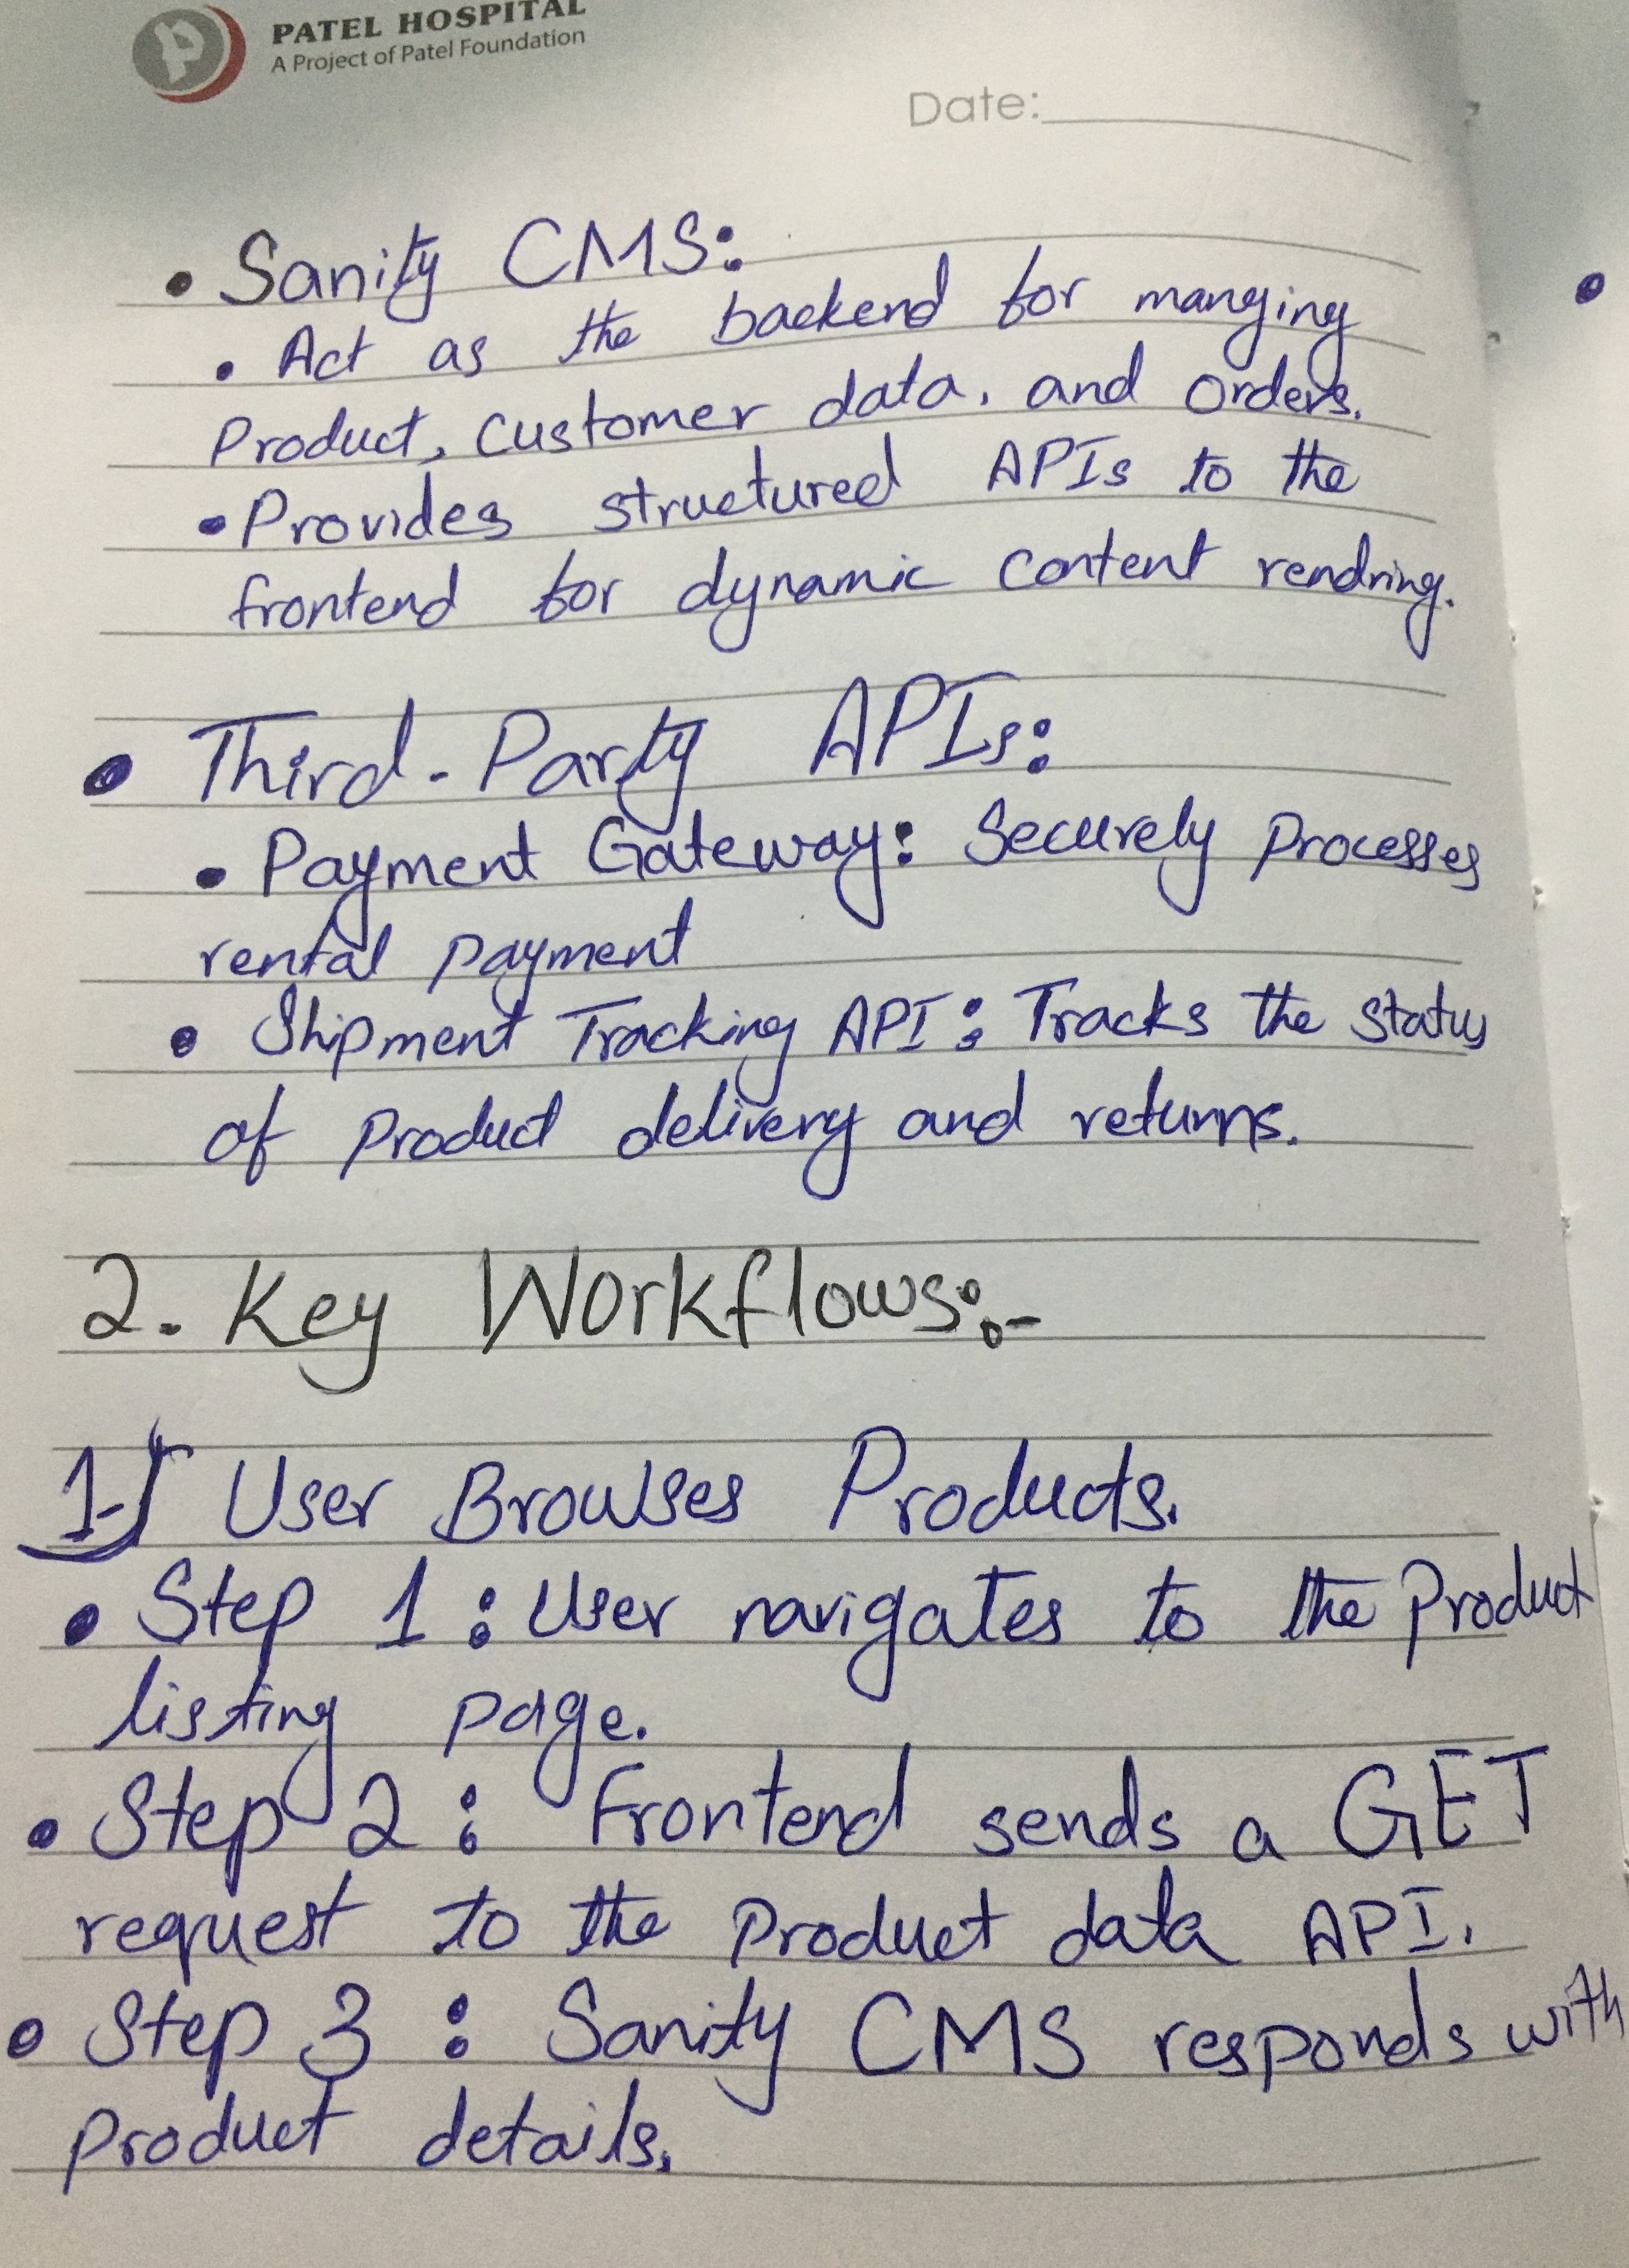 PATEL HOSPITAL
A Project of Patel Foundation
Date:
• Sanity CMS:
• Act as the backend for manging
Product, Customer data, and Orders.
• Provides structured APIs to the
frontend for dynamic content rendring.
• Third-Party APIs:
• Payment Gateway: Securely Processes
rental payment
• Shipment Tracking API: Tracks the status
of Product delivery and returns.
2. Key Workflows:-
1-) User Browses Products.
• Step 1: User navigates to the Product
listing page.
• Step 2: Frontend sends a GET
request to the Product data API.
• Step 3: Sanity CMS responds with
Product details.